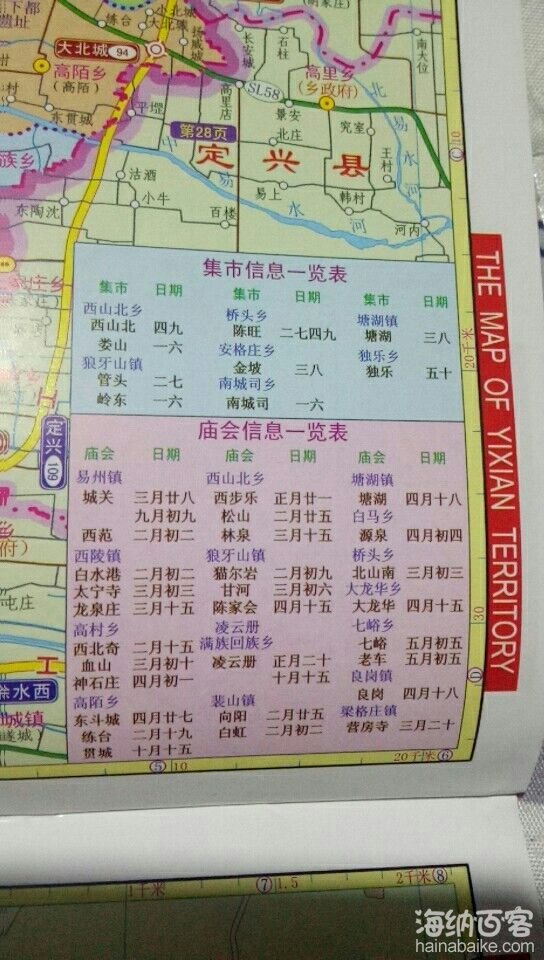 下都
遗址
练台
小北城
大北城
扬威城
大北城 94
高陌乡
(高陌)
东贯城
平堽
长安城
石柱
高里店
SL58
高里乡
(乡政府)
南大位
景安
北庄
究室
王村
第28页
定兴县
族乡
沽酒
小牛
东陶沈
百楼
易上
韩村
河内
中易水河
北易水河
庄乡
定兴 109
集市信息一览表
集市 日期 集市 日期 集市 日期
西山北乡 桥头乡 塘湖镇
西山北 四九 陈旺 二七四九 塘湖 三八
娄山 一六 安格庄乡 独乐乡
狼牙山镇 金坡 三八 独乐 五十
管头 二七 南城司乡
岭东 一六 南城司 一六
庙会信息一览表
庙会 日期 庙会 日期 庙会 日期
易州镇 西山北乡 塘湖镇
城关 三月廿八 西步乐 正月廿一 塘湖 四月十八
九月初九 松山 二月廿五 白马乡
西范 二月初二 林泉 三月十五 源泉 四月初四
西陵镇 狼牙山镇 桥头乡
白水港 二月初二 猫尔岩 二月初九 北山南 三月初三
太宁寺 三月初三 甘河 三月初六 大龙华乡
龙泉庄 三月十五 陈家会 四月十五 大龙华 四月十五
高村乡 凌云册 七峪乡
西北奇 二月十五 满族回族乡 七峪 五月初五
血山 三月初十 凌云册 正月二十 老车 五月初五
神石庄 四月初一 十月十五 良岗镇
高陌乡 裴山镇 良岗 四月十八
东斗城 四月廿七 向阳 二月廿五 梁格庄镇
练台 二月十九 白虹 二月初二 营房寺 三月二十
贯城 十月十五
府)
屯庄
徐水西
城镇
遂城)
工
THE MAP OF YIXIAN TERRITORY
10
20千米
30
⑤ 10
20千米 ⑥
1千米
⑦ 1.5
2千米 ⑧
海纳百客
hainabaike.com